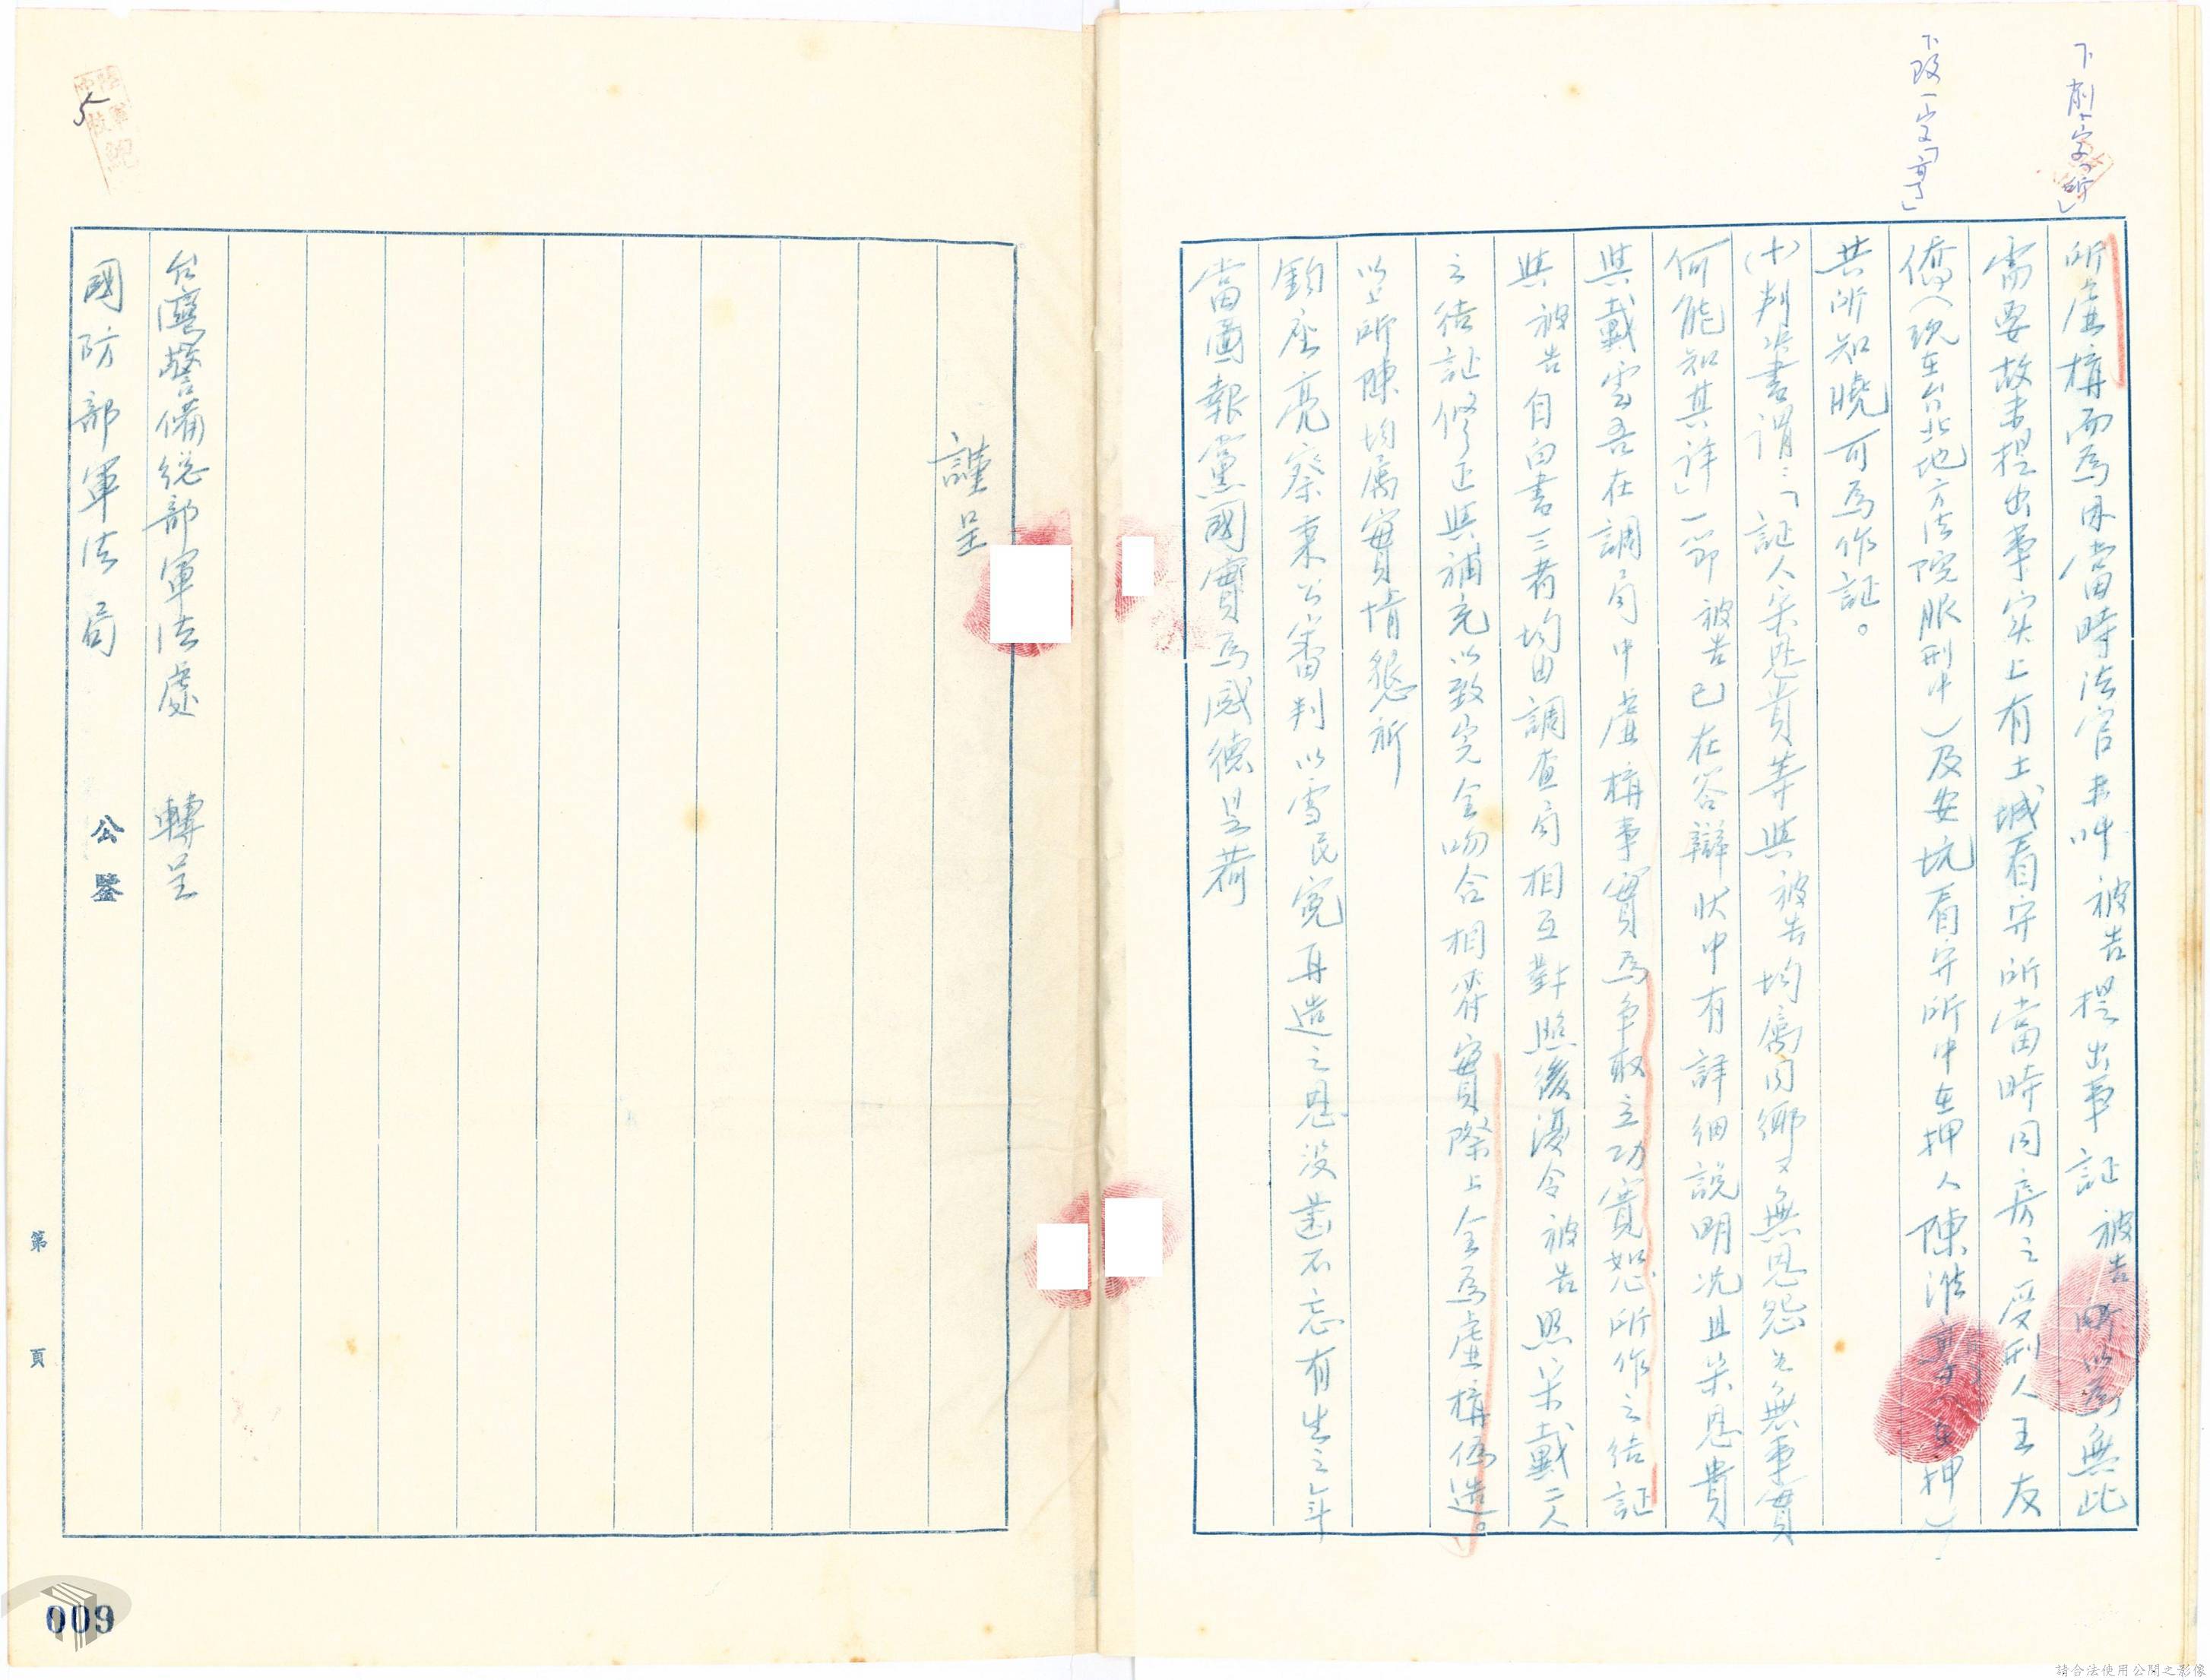 下刪一字「所」
下改一字「亭」
所虛構而為因當時法官未叫被告提出事証被告以為無此
需要故未提出事实上有土城看守所當時同房之受刑人王友
僑(現在台北地方法院服刑中)及安坑看守所中在押人陳淮(在押)
共所知曉可為作証。
(十)判決書謂:「証人宋恩貴等與被告均屬同鄉又無恩怨若無事實
何能知其詳」一節被告已在答辯狀中有詳細說明况且宋恩貴
與戴雲吾在調局中虛構事實為争取立功寬恕所作之结証
與被告自白書三者均由調查局相互對照後復令被告照宋戴二人
之结証修正與補充以致完全吻合相符實際上全為虛構偽造。
以上所陳均屬實情懇祈
鈞座亮察秉公審判以雪民寃再造之恩没齒不忘有生之年
當圖報黨國實為感德是荷
謹呈
台灣警備総部軍法處 轉呈
國防部軍法局 公鑒
第 頁
5
009
請合法使用公開之影像